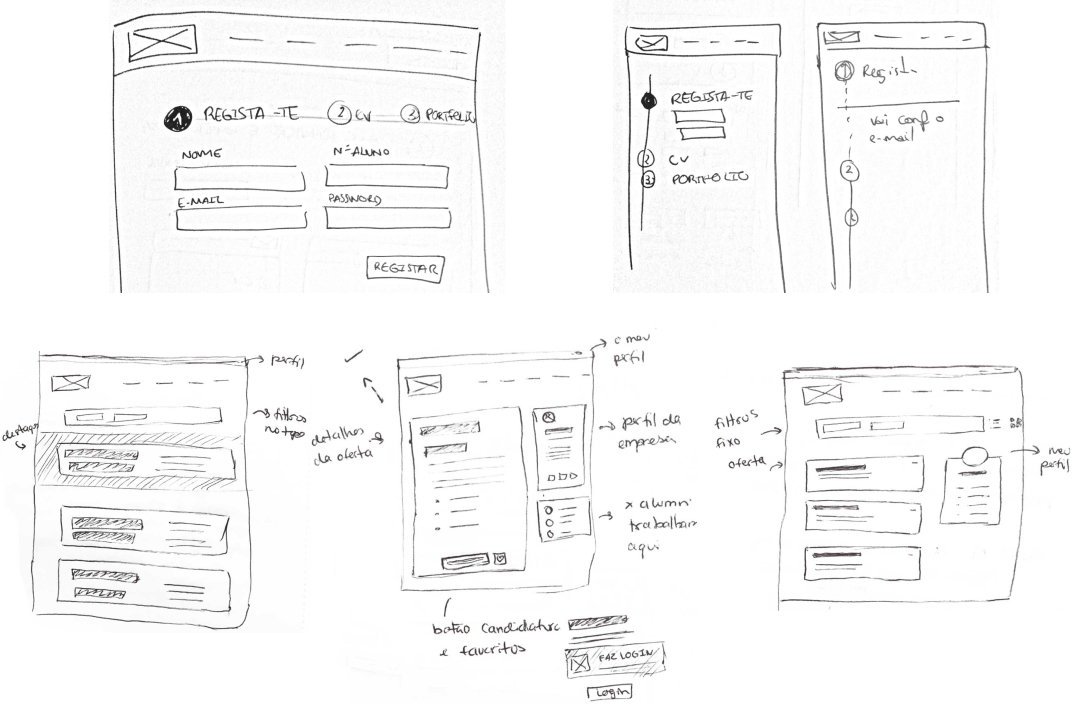 1 REGISTA-TE
2 CV
3 PORTFOLIO
NOME
Nº ALUNO
E-MAIL
PASSWORD
REGISTAR
REGISTA-TE
2 CV
3 PORTFOLIO
1 Regist.
vai conf o
e-mail
2
3
perfil
filtros
no topo
destaque
o meu
perfil
detalhes
da oferta
perfil da
empresa
x alumni
trabalham
aqui
botão candidatura
e favoritos
FAZ LOGIN
Login
filtros
fixo
oferta
meu
perfil